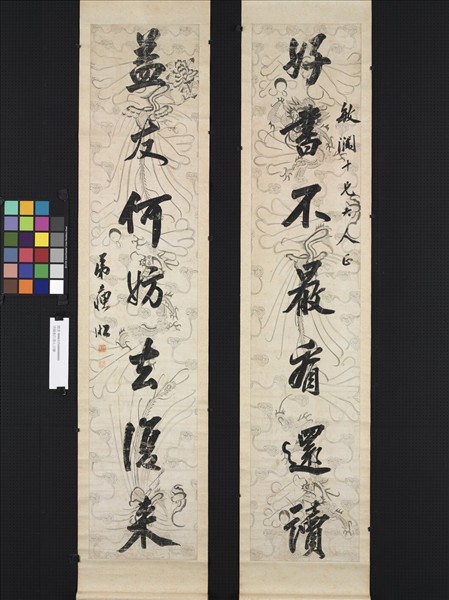 十兄大人正
好書不厭看還讀
益友何妨去復來
弟